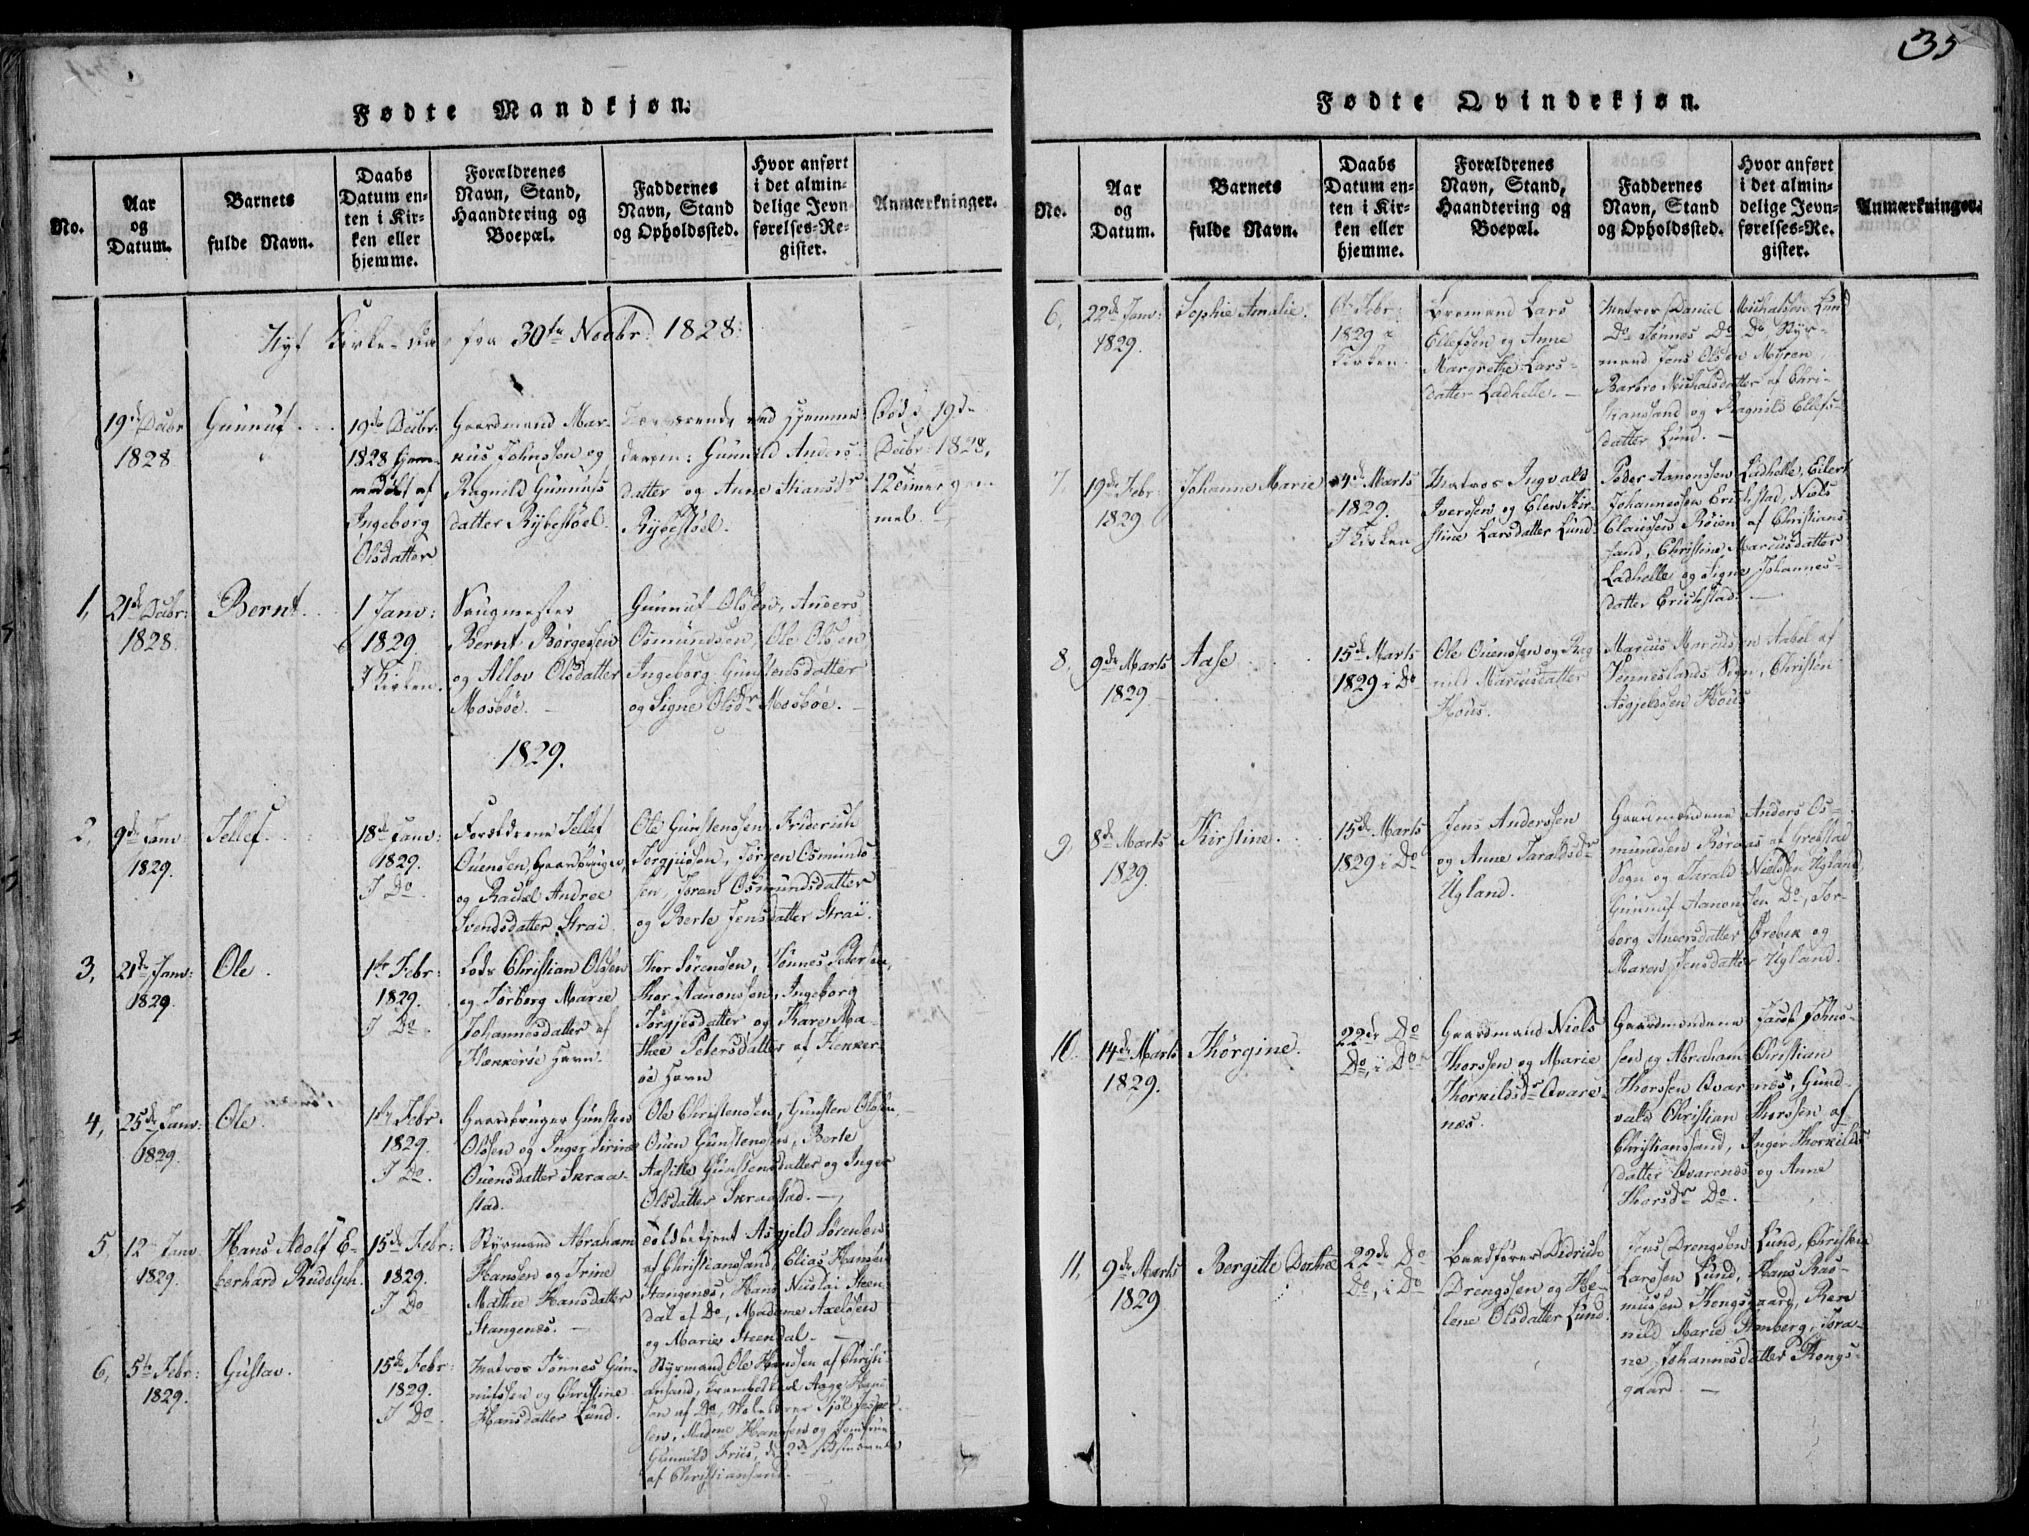 35
Fødte Mandkjøn.
No.
Aar
og
Datum.
Barnets
fulde Navn.
Daabs
Datum en-
ten i Kir-
ken eller
hjemme.
Forældrenes
Navn, Stand,
Haandtering og
Boepæl.
Faddernes
Navn, Stand
og Opholdssted.
Hvor anført
i det almin-
delige Jevn-
førelses-Re-
gister.
Anmærkninger.
Nyt Kirke-Aar fra 30te Novbr: 1828:
19de Decbr
1828
Gunnuf
19de Decbr:
1828 hjem-
medøbt af
Ingeborg
Olsdatter
Gaardmand Mar-
kus Johnssen og
Ragnild Gunnufs
datter Rybestøel.
ved Hjemme-
daaben: Gunnild Anders-
datter og Anne
Rybestøel.
Død d. 19de
Decbr: 1828,
12 Timer gam-
mel.
1,
21de Decbr:
1828
Bernt
1 Janv:
1829
I Kirken.
Saugmester
Bernt Børgesen
og Allov Olsdatter
Mosbøe.
Gunnuf Olssen, Anders
Osmundsen, Ole Olsen,
Ingeborg Gunstensdatter
og Signe Olsdr Mosbøe.
1829.
2,
9de Janv:
1829.
Tellef.
18de Janv:
1829.
I Do
Forældrene Tellef
Ouensen, Gaardbruger,
og Rachel Andree
Svendsdatter Strai
Ole Gunstenssen, Friderich
Torgjussen, Jørgen Osmunds-
sen, Joren Osmundsdatter
og Berte Jensdatter Strai.
3,
21de Janv:
1829.
Ole.
1te Febr:
1829.
I Do
Lods Christian Olsen
og Torborg Marie
Johannesdatter af
Flekkerøe Havn.
Thor Sørenssen, Tønnes Petersen,
Thor Aanonssen, Ingeborg
Torgjesdatter og Karen Ma-
thee Petersdatter af Flekker-
øe Havn
4,
25de Janv:
1829.
Ole.
1te Febr:
1829.
I Do.
Gaardbruger Gunsten
Olssen og Inger Sirine
Ouensdatter Skraa-
stad.
Ole Christenssen, Gunsten Olssen,
Ouen Gunstenssen, Berte
Aasille Gunstensdatter og Inger
Olsdatter Skraastad.
5,
12 Janv
1829.
Hans Adolf E-
berhard Rudolph.
15de Febr:
1829.
I Do
Styrmand Abraham
Hanssen og Trine
Mathie Hansdatter
Stangenes.
Toldbetjent Asgjeld Sørensen
af Christianssand, Elias Hansen
Stangenes, Hans Nicolai Steen-
dal af Do, Madame Axelssen
og Marie Steendal.
6,
5te Febr:
1829.
Gustav.
15de Febr:
1829.
I Do
Matros Tønnes Gun-
nufssen og Christine
Hansdatter Lund.
Styrmand Ole Hanssen af Christi-
ansand, Aage Hans-
sen af Do,
sen, Madme Hanssen og Jomfrue
Gunnild Friis, de 2de sidstnævnte
af Christianssand.
Fødte Qvindekjøn.
No.
Aar
og
Datum.
Barnets
fulde Navn.
Daabs
Datum en-
ten i Kir-
ken eller
hjemme.
Forældrenes
Navn, Stand,
Haandtering og
Boepæl.
Faddernes
Navn, Stand
og Opholdssted.
Hvor anført
i det almin-
delige Jevn-
førelses-Re-
gister.
Anmærkninger.
6,
22de Janv:
1829.
Sophie Amalie.
Febr:
1829 i
Kirken.
Lars
Ellefsen og Anne
Margrethe Lars-
datter Ladhelle.
Matros Daniel Michalssen Lund
Do Tønnes Do Do Styr-
mand Jens Olsen Myren,
Barbro Michalsdatter af Chri-
stianssand og Ragnild Ellefs-
datter Lund.
7,
19de Febr:
1829
Johanne Marie
4de Marts
1829.
I Kirken
Matros Ingvald
Iverssen og Elen Kir-
stine Larsdatter Lund
Peder Aanonssen Ladhelle, Eilert
Johannessen Erichstad, Niels
Claussen Røien af Christians-
sand, Christine Marcusdatter
Ladhelle og Signe Johannes-
datter Erichstad.
8,
9de Marts
1829
Aase
15de Marts
1829 i Do
Ole Ouenssen og Rag
nild Marcusdatter
Hous.
Marcus Marcussen Aabel af
Vennesland Sogn, Christen
Asgjeldssen Hous
9,
8de Marts
1829.
Kirstine
15de Marts
1829 i Do
Jens Anderssen
og Anne Taraldsdr
Ugland.
Gaardmændene Anders Os-
mundssen Røraas af Greebstad
Sogn og Tarald Nielssen Ugland,
Gunnuf Aanonssen Do, Tor-
borg Andersdatter Ørebek og
Maren Jensdatter Ugland.
10.
14de Marts
1829.
Thorgine.
22de Do
Do, i Do
Gaardmand Niels
Thorssen og Marie
Thorkildsdr Qvare-
næs.
Gaardmændene Jacob Johns-
sen og Abraham Christian
Thorssen Qvarenæs, Gund-
vald Christian Thorssen af
Christianssand, Inger Thorkilds
datter Qvarenæs og Anne
Thorsdr Do.
11,
9de Marts
1829
Bergitte Dorthe
22de Do
Do, i Do
Baadfører Didrich
Drengssen og He-
lene Olsdatter Lund.
Jens Drengssen Lund, Christian
Larssen Lund, Hans Ras-
mussen Kongsgaard,
nild Marie Stenberg, Tora-
ne Johannesdatter Kongs-
gaard.